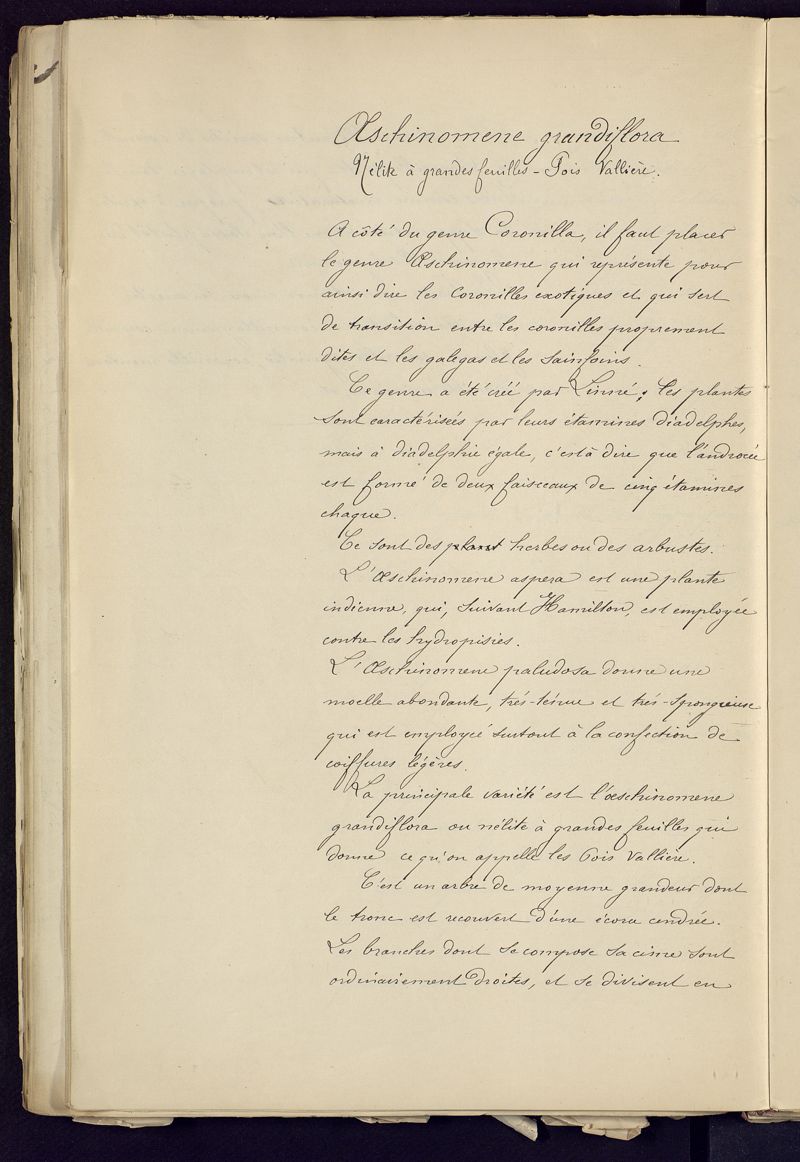 Æschinomene grandiflora
Nélite à grandes feuilles - Pois Vallière.
A côté du genre Coronilla, il faut placer
le genre Æschinomene qui représente pour
ainsi dire les Coronilles exotiques et qui sert
de transition entre les coronilles proprement
dites et les galegas et les Sainfoins.
Ce genre a été créé par Linné; les plantes
sont caractérisées par leurs étamines diadelphes,
mais à diadelphie égale, c'est à dire que l'androcée
est formé de deux faisceaux de cinq étamines
chaque.
Ce sont des herbes ou des arbustes.
L'Æschinomene aspera est une plante
indienne, qui, suivant Hamilton, est employée
contre les hydropisies.
L'Æschinomene paludosa donne une
moelle abondante, très-ténue et très-spongieuse
qui est employée surtout à la confection de
coiffures légères.
La principale variété est l'æschinomene
grandiflora ou nélite à grandes feuilles qui
donne ce qu'on appelle les Pois Vallière.
C'est un arbre de moyenne grandeur dont
le tronc est recouvert d'une écorce cendrée.
Les branches dont se compose sa cime sont
ordinairement droites, et se divisent en